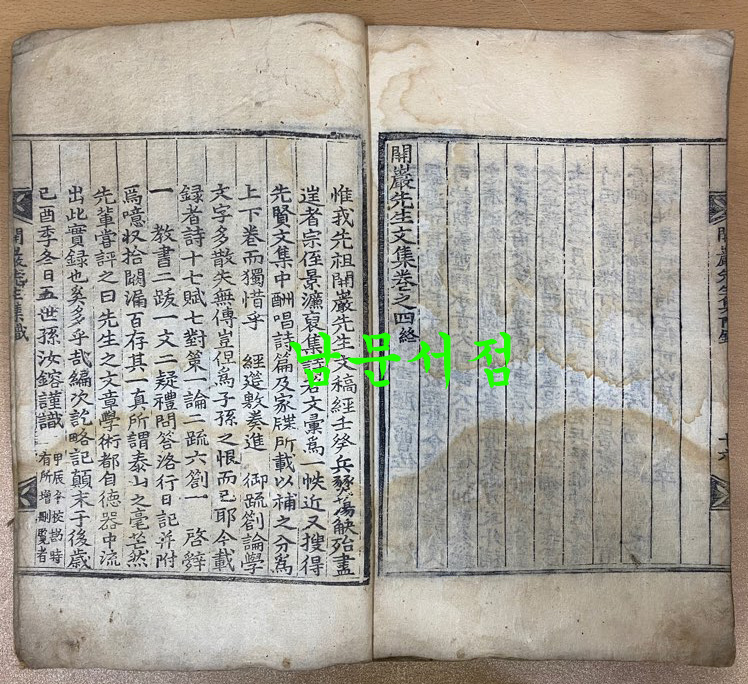 開巖先生文集卷之四終
開巖先生集附錄
十六
惟我先祖開巖先生文稿經壬癸兵燹蕩缺殆盡
迬者宗侄景瀗裒集詩若文彙為一帙近又搜得
先賢文集中酬唱詩篇及家牒所載以補之分為
上下卷而獨惜乎 經筵敷奏進 御疏劄論學
文字多散失無傳豈但為子孫之恨而已耶今載
錄者詩十七賦七對策一論二疏六劄一 啓辭
一 教書二跋一文二疑禮問答洛行日記并附
焉噫收拾闕漏百存其一真所謂泰山之毫芒然
先輩嘗評之曰先生之文章學術都自德器中流
出此實錄也奚多乎哉編次訖略記顛末于後歲
己酉季冬日五世孫汝鎔謹識
甲辰 時
有所增刪覽者
開巖先生集識
남문서점